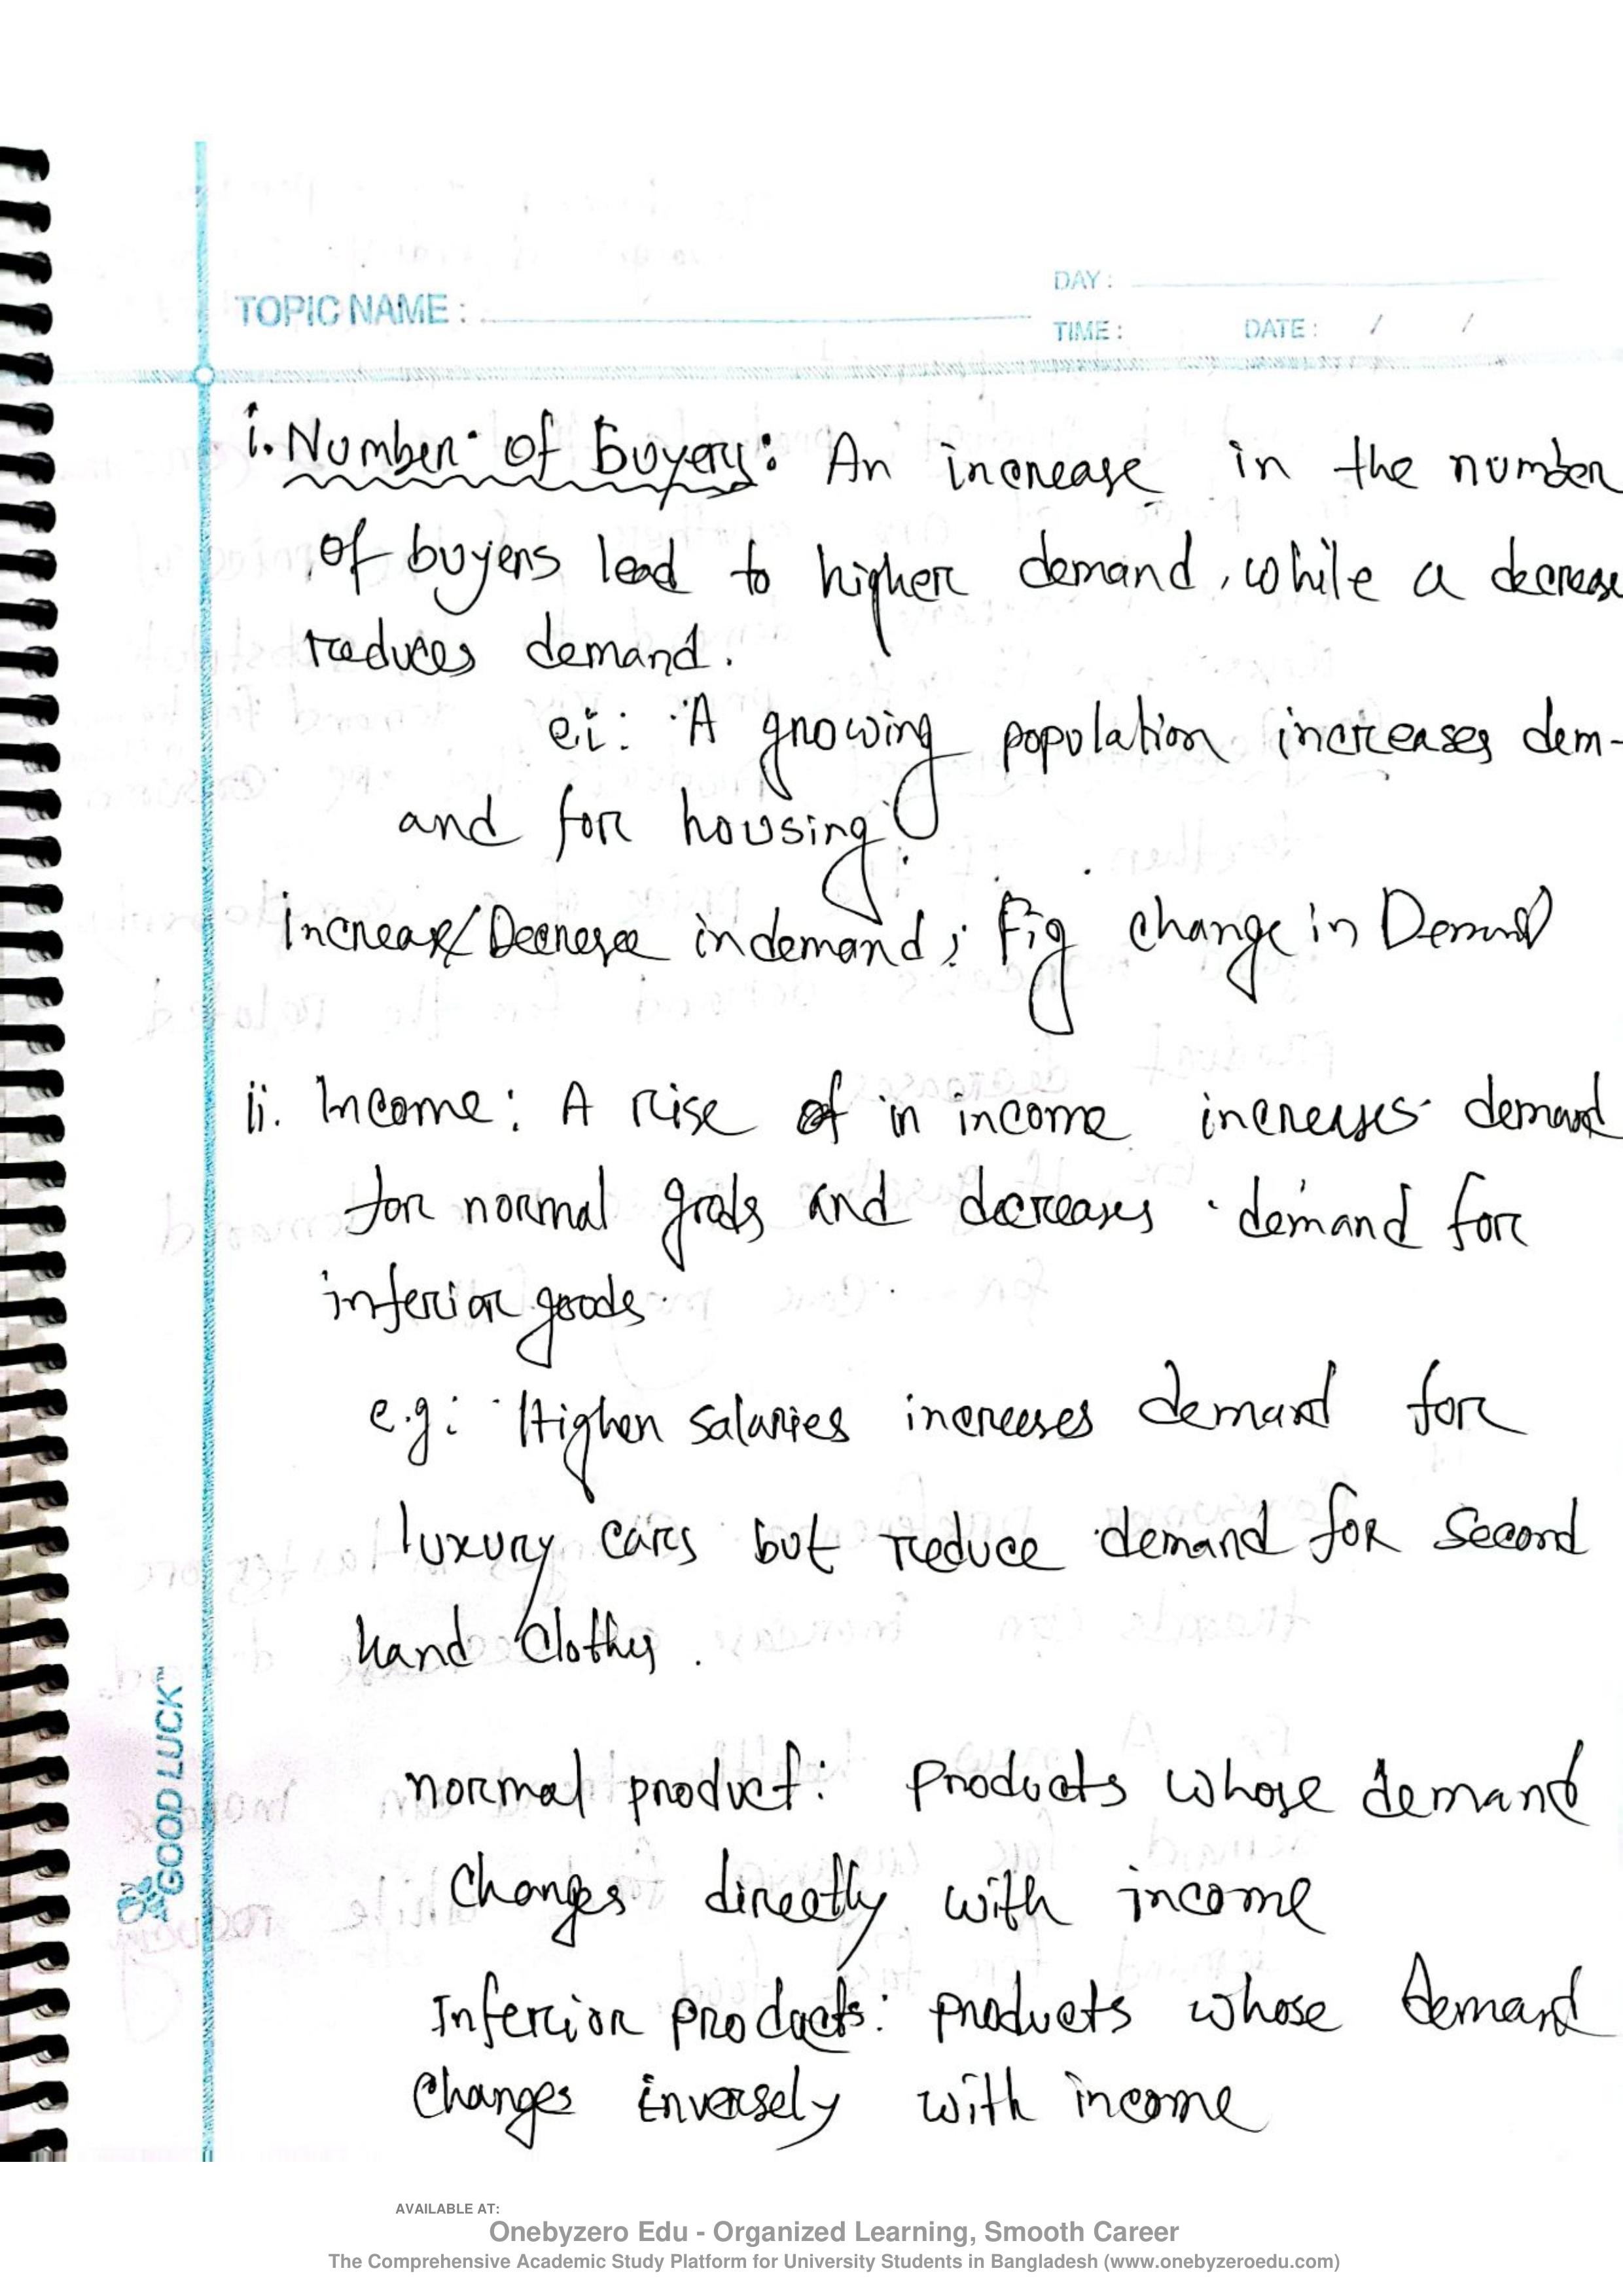 TOPIC NAME :
DAY :
TIME :
DATE : / /
i. Number of Buyers: An increase in the number
of buyers lead to higher demand, while a decrease
reduces demand.
ei: A growing population increases dem-
and for housing
Increase/Decrease in demand; Fig change in Demand
ii. Income: A rise of in income increases demand
for normal goods and decreases demand for
inferior goods.
e.g: Higher salaries increases demand for
luxury cars but reduce demand for second
hand clothes.
normal product: Products whose demand
changes directly with income
Inferior products: products whose demand
changes inversely with income
GOOD LUCK™
AVAILABLE AT:
Onebyzero Edu - Organized Learning, Smooth Career
The Comprehensive Academic Study Platform for University Students in Bangladesh (www.onebyzeroedu.com)